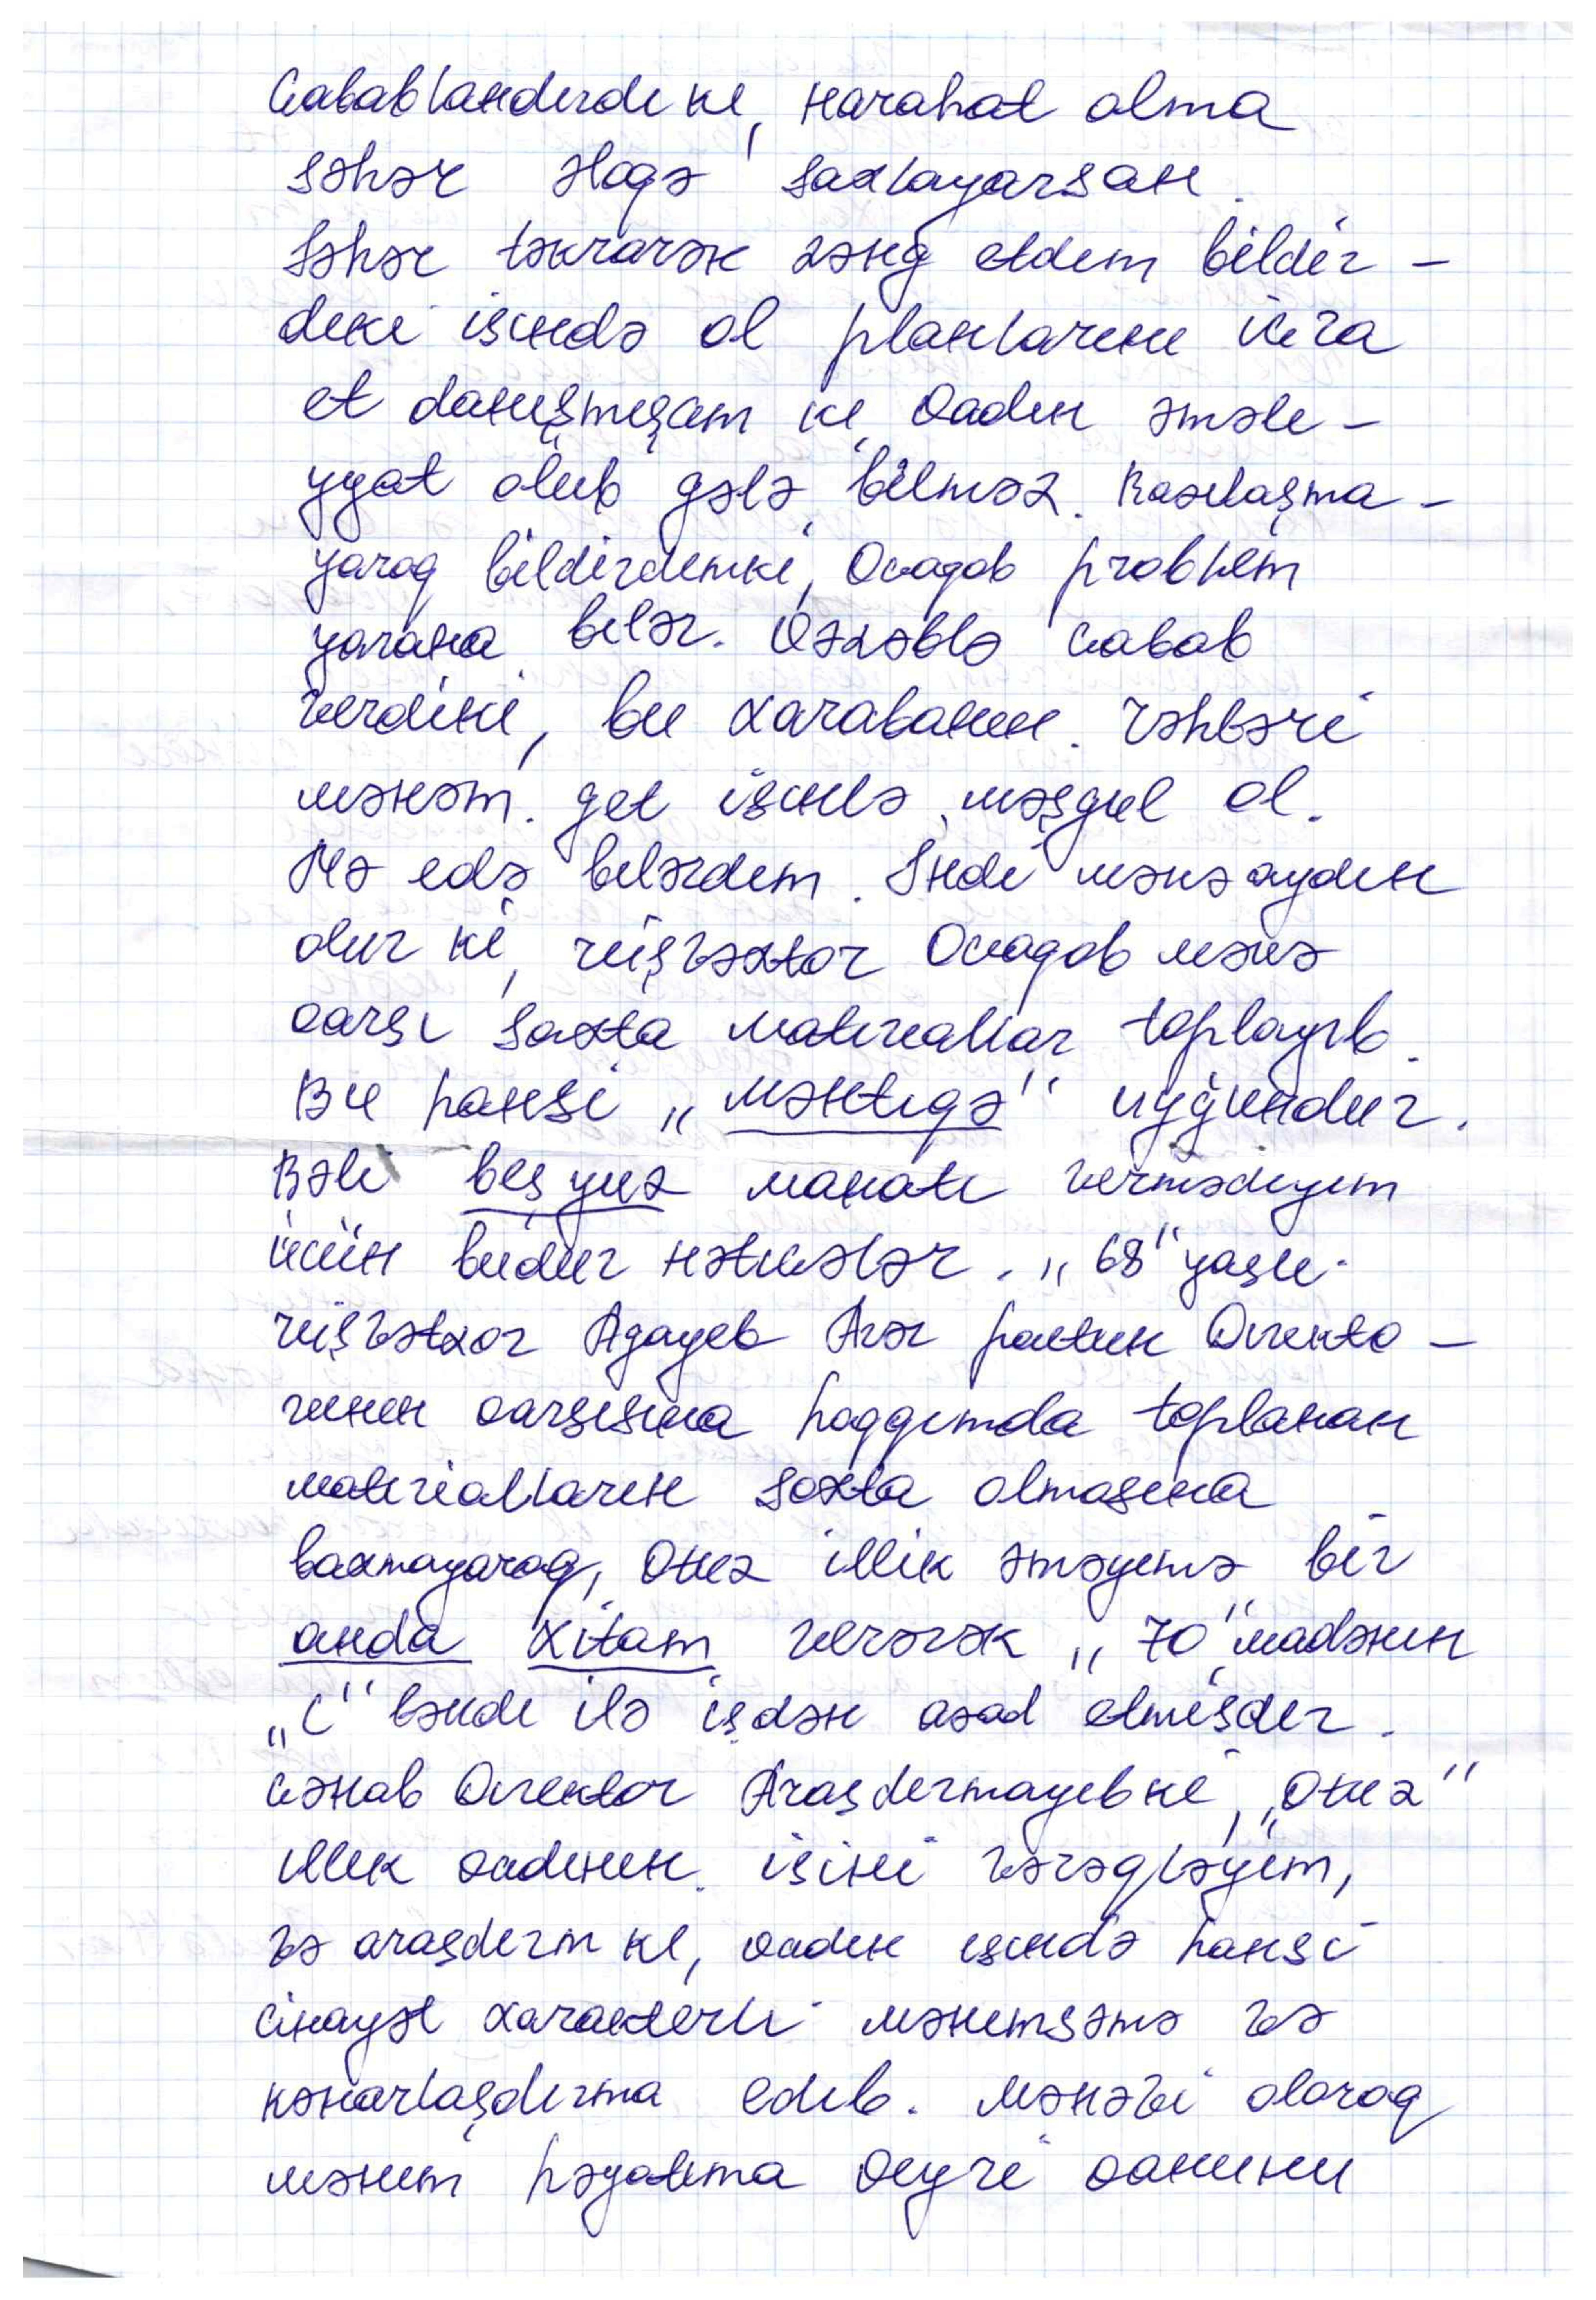 Cavablandırdı ki, narahat olma
səhər əlaqə saxlayarsan.
Səhər təkrarən zəng etdim bildir-
diki işində ol planlarını icra
et danışmışam ki Qadın əməli-
yyat olub gələ bilməz. Razılaşma-
yaraq bildirdimki, Ocaqov problem
yarana bilər. Qəzəblə cavab
verdiki, bu xarabanın rəhbəri
mənəm. get işinlə məşğul ol.
Nə edə bilərdim. İndi mənə aydın
olur ki, rüşvətxor Ocaqov mənə
qarşı saxta materiallar toplayıb.
Bu hansi „məntiqə" uyğundur.
Bəli beş yüz manatı vermədiyim
üçün budur nəticələr. „68" yaşlı
rüşvətxor Agayev Araz partun Direkto-
runun qarşısına haqqımda toplanan
materialların saxta olmasına
baxmayaraq, Otuz illik əməyimə bir
anda xitam verərək „70" madənin
„C" bəndi ilə işdən azad etmişdir.
Cənab Direktor Araşdırmayıbki, „Otuz"
illik qadının işini vərəqləyim,
və araşdırım ki, qadın işində hansi
cinayət xarakterli mənimsəmə və
kənarlaşdırma edib. Mənəvi olaraq
mənim həyatıma qeyri qanuni